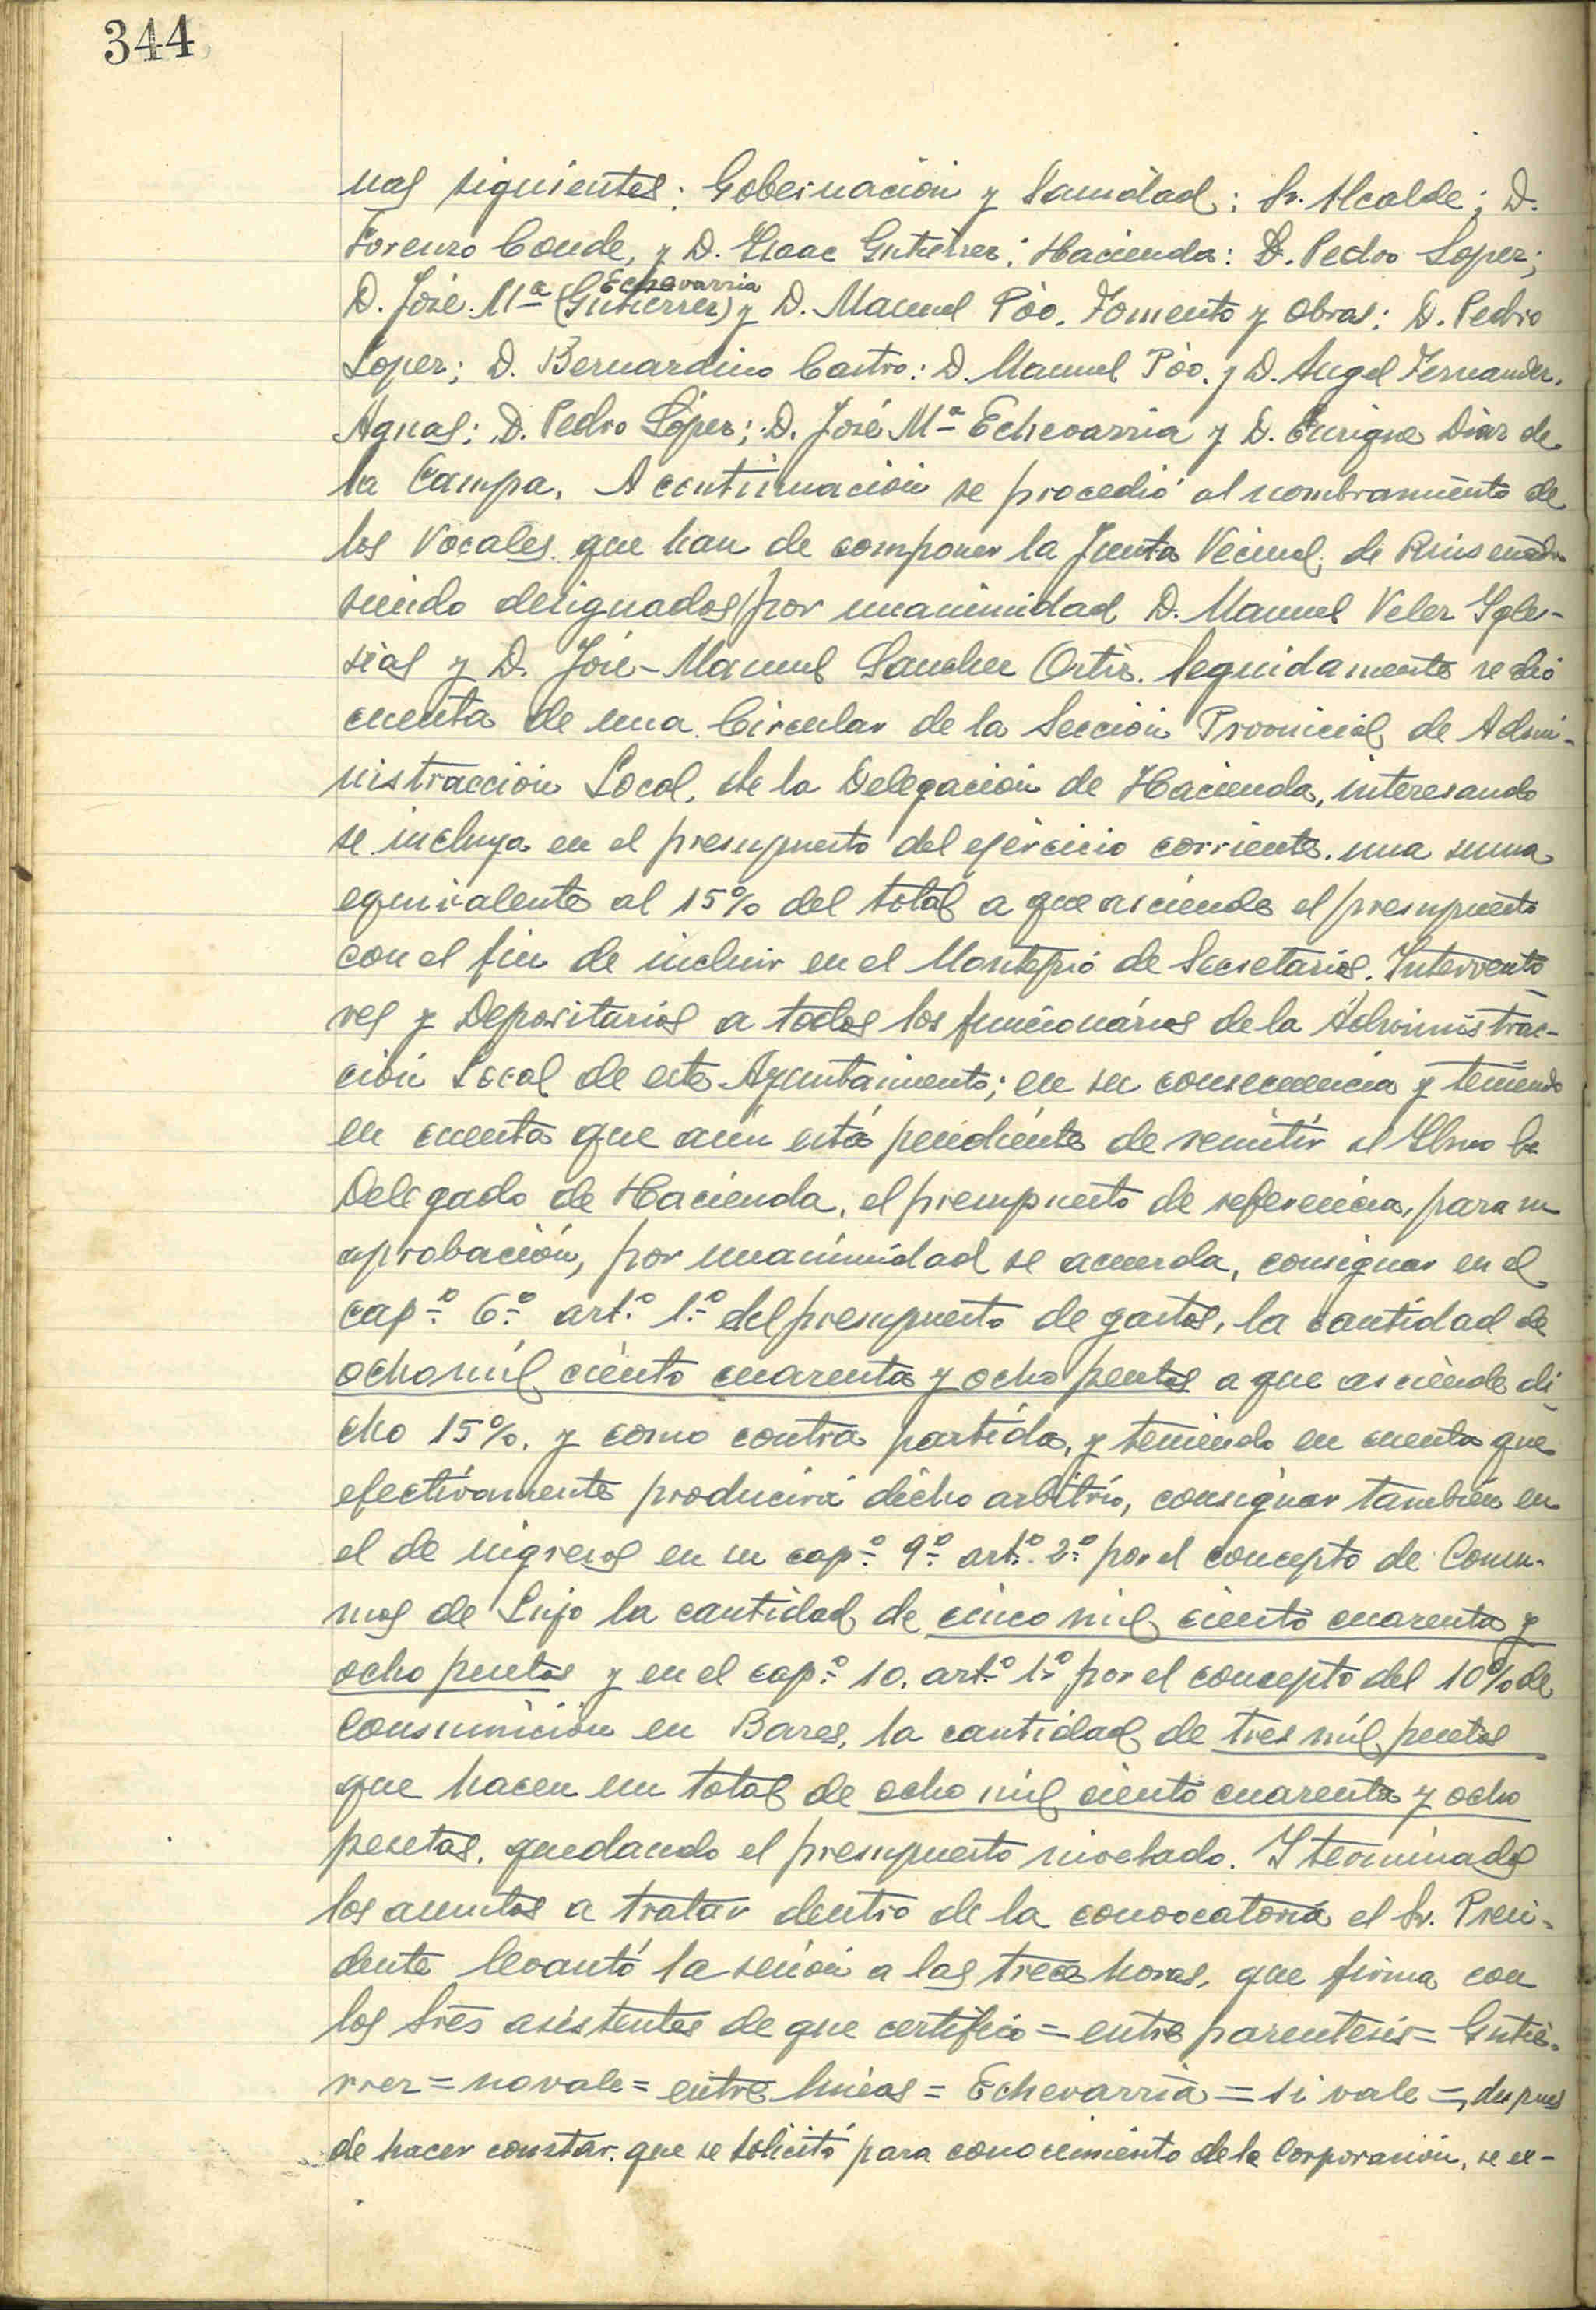 344
nas siguientes: Gobernación y Sanidad: Sr. Alcalde; D.
Lorenzo Conde, y D. Isaac Gutiérrez; Hacienda: D. Pedro Lopez;
Echevarria
D. José Mª (Gutierrez) y D. Manuel Póo. Fomento y Obras: D. Pedro
Lopez; D. Bernardino Castro: D. Manuel Póo. y D. Angel Fernandez.
Aguas: D. Pedro López; D. José Mª Echevarria y D. Enrique Diaz de
la Campa. A continuación se procedió al nombramiento de
los Vocales que han de componer la Junta Vecinal de Ruiseñada
siendo designados por unanimidad D. Manuel Velez Igle-
sias y D. José-Manuel Sanchez Ortiz. Seguidamente se dió
cuenta de una Circular de la Sección Provincial de Admi-
nistracción Local, de la Delegación de Hacienda, interesando
se incluya en el presupuesto del ejércicio corriente, una suma
equivalente al 15% del total a que asciende el presupuesto
con el fin de incluir en el Montepió de Secretarios. Intervento-
res y Depositarios a todos los funcionários de la Administrac-
ción Local de este Ayuntamiento; en su consecuencia y teniendo
en cuenta que aun está pendiente de remitir al Ilmo Sr
Delegado de Hacienda, el presupuesto de referencia, para su
aprobación, por unanimidad se acuerda, consignar en el
cap.º 6.º art.º 1.º del presupuesto de gastos, la cantidad de
ochomil ciento cuarenta y ocho pesetas a que asciende di-
cho 15%. y como contra partida, y teniendo en cuenta que
efectivamente producirá dicho arbitrio, consignar también en
el de ingresos en su cap.º 9.º art.º 2.º por el concepto de Consu-
mos de Lujo la cantidad de cinco mil ciento cuarenta y
ocho pesetas y en el cap.º 10. art.º 1.º por el concepto del 10% de
consumición en Bares, la cantidad de tres mil pesetas
que hacen un total de ocho mil ciento cuarenta y ocho
pesetas. quedando el presupuesto nivelado. Y terminados
los asuntos a tratar dentro de la convocatoria el Sr. Presi-
dente levantó la sesión a las trece horas, que firma con
los Sres asistentes de que certifico = entre parentesis = Gutié-
rrez = no vale = entre lineas = Echevarria = si vale =, despues
de hacer constar que se solicitó para conocimiento de la Corporación, se ex-